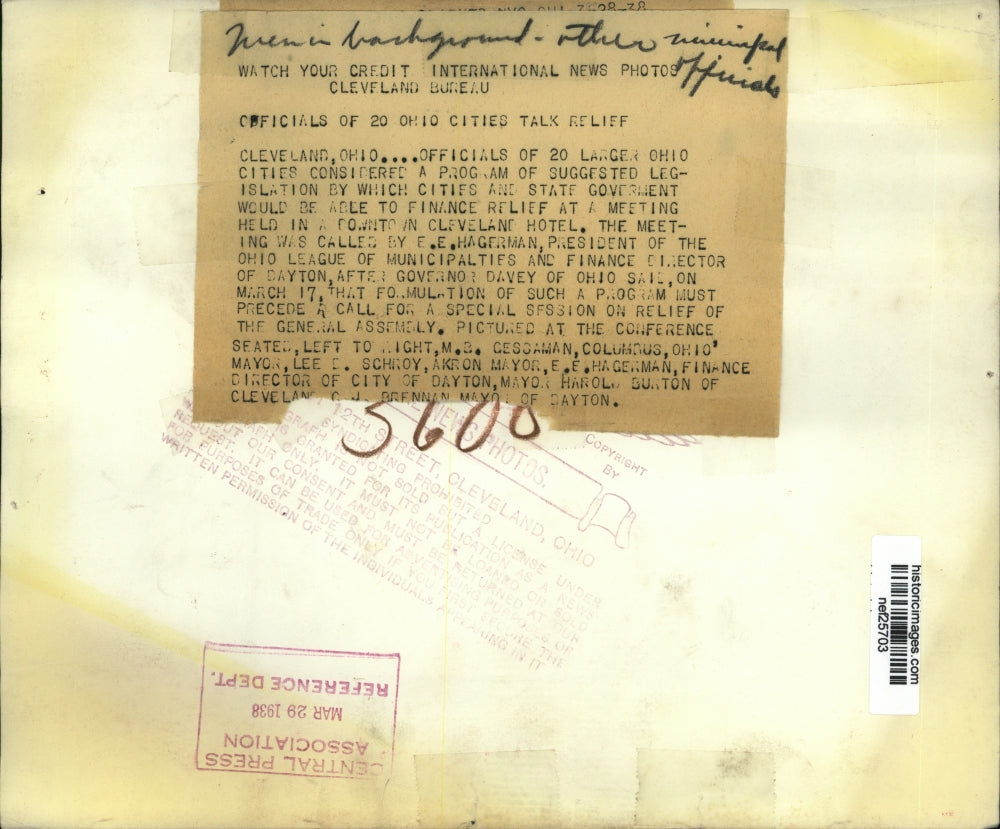 3-28-38
men in background - other municipal
officials
WATCH YOUR CREDIT INTERNATIONAL NEWS PHOTOS
CLEVELAND BUREAU
OFFICIALS OF 20 OHIO CITIES TALK RELIEF
CLEVELAND, OHIO....OFFICIALS OF 20 LARGER OHIO
CITIES CONSIDERED A PROGRAM OF SUGGESTED LEG-
ISLATION BY WHICH CITIES AND STATE GOVERMENT
WOULD BE ABLE TO FINANCE RELIEF AT A MEETING
HELD IN A DOWNTOWN CLEVELAND HOTEL. THE MEET-
ING WAS CALLED BY E.E.HAGERMAN, PRESIDENT OF THE
OHIO LEAGUE OF MUNICIPALTIES AND FINANCE DIRECTOR
OF DAYTON, AFTER GOVERNOR DAVEY OF OHIO SAID, ON
MARCH 17, THAT FORMULATION OF SUCH A PROGRAM MUST
PRECEDE A CALL FOR A SPECIAL SESSION ON RELIEF OF
THE GENERAL ASSEMBLY. PICTURED AT THE CONFERENCE
SEATED, LEFT TO RIGHT, M.B. GESSAMAN, COLUMBUS, OHIO'
MAYOR, LEE D. SCHROY, AKRON MAYOR, E.E.HAGERMAN, FINANCE
DIRECTOR OF CITY OF DAYTON, MAYOR HAROLD BURTON OF
CLEVELAND C.J. BRENNAN MAYOR OF DAYTON.
5600
COPYRIGHT
BY
NEWS PHOTOS.
12TH STREET, CLEVELAND, OHIO
SYNDICATING PROHIBITED
GRAPH IS NOT SOLD BUT A LICENSE UNDER
IS GRANTED FOR ITS PUBLICATION AS A NEWS
ONLY. IT MUST NOT BE LOANED OR SOLD
OUT OUR CONSENT AND MUST BE RETURNED AT OUR
REQUEST. IT CAN BE USED FOR ADVERTISING PURPOSES OR
FOR PURPOSES OF TRADE ONLY IF YOU FIRST SECURE THE
WRITTEN PERMISSION OF THE INDIVIDUALS APPEARING IN IT
historicimages.com
nef25703
CENTRAL PRESS
ASSOCIATION
MAR 29 1938
REFERENCE DEPT.